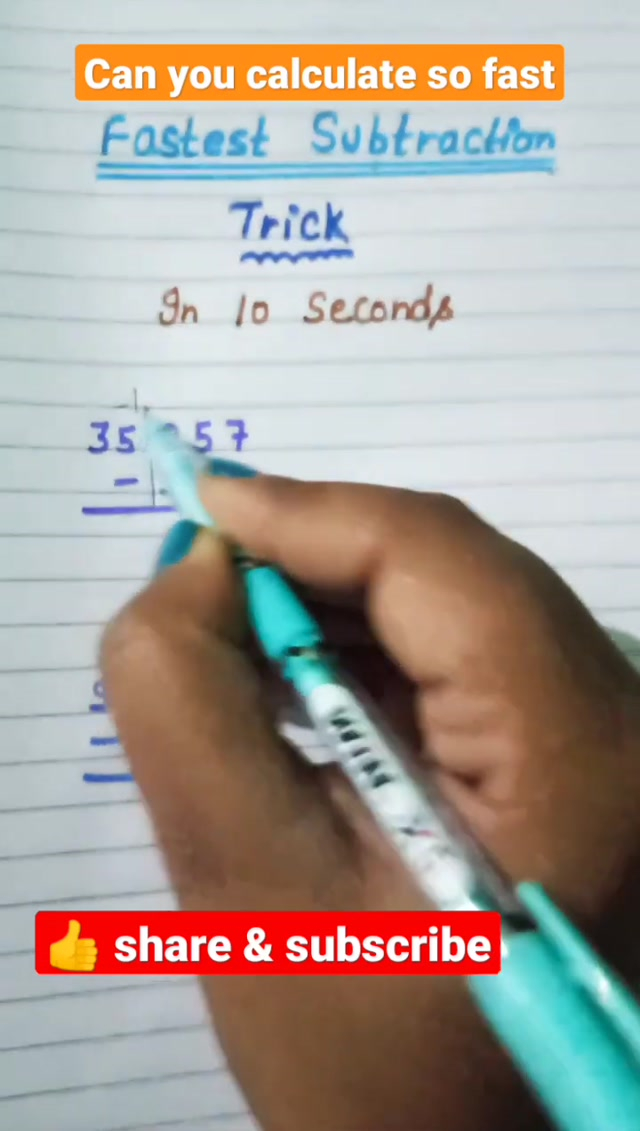 Can you calculate so fast
Fastest Subtraction
Trick
In 10 Seconds
-1
35 57
-
👍 share & subscribe